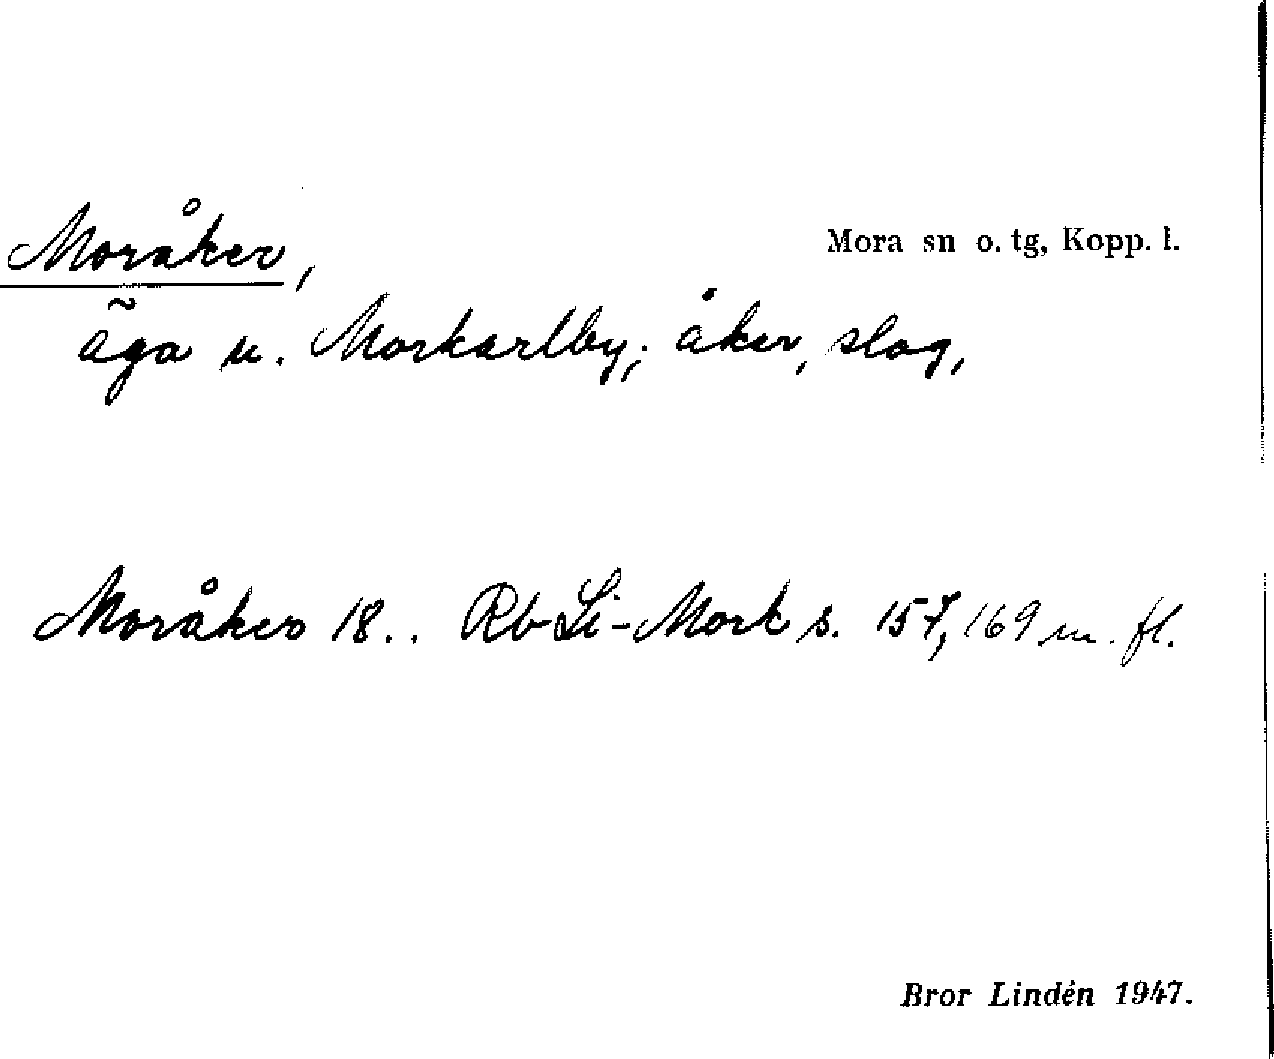 Moråker,
Mora sn o. tg, Kopp. l.
äga u. Morkarlby; åker, slog,
Moråker 18.. Rb Li-Mork s. 157, 169 m. fl.
Bror Lindén 1947.